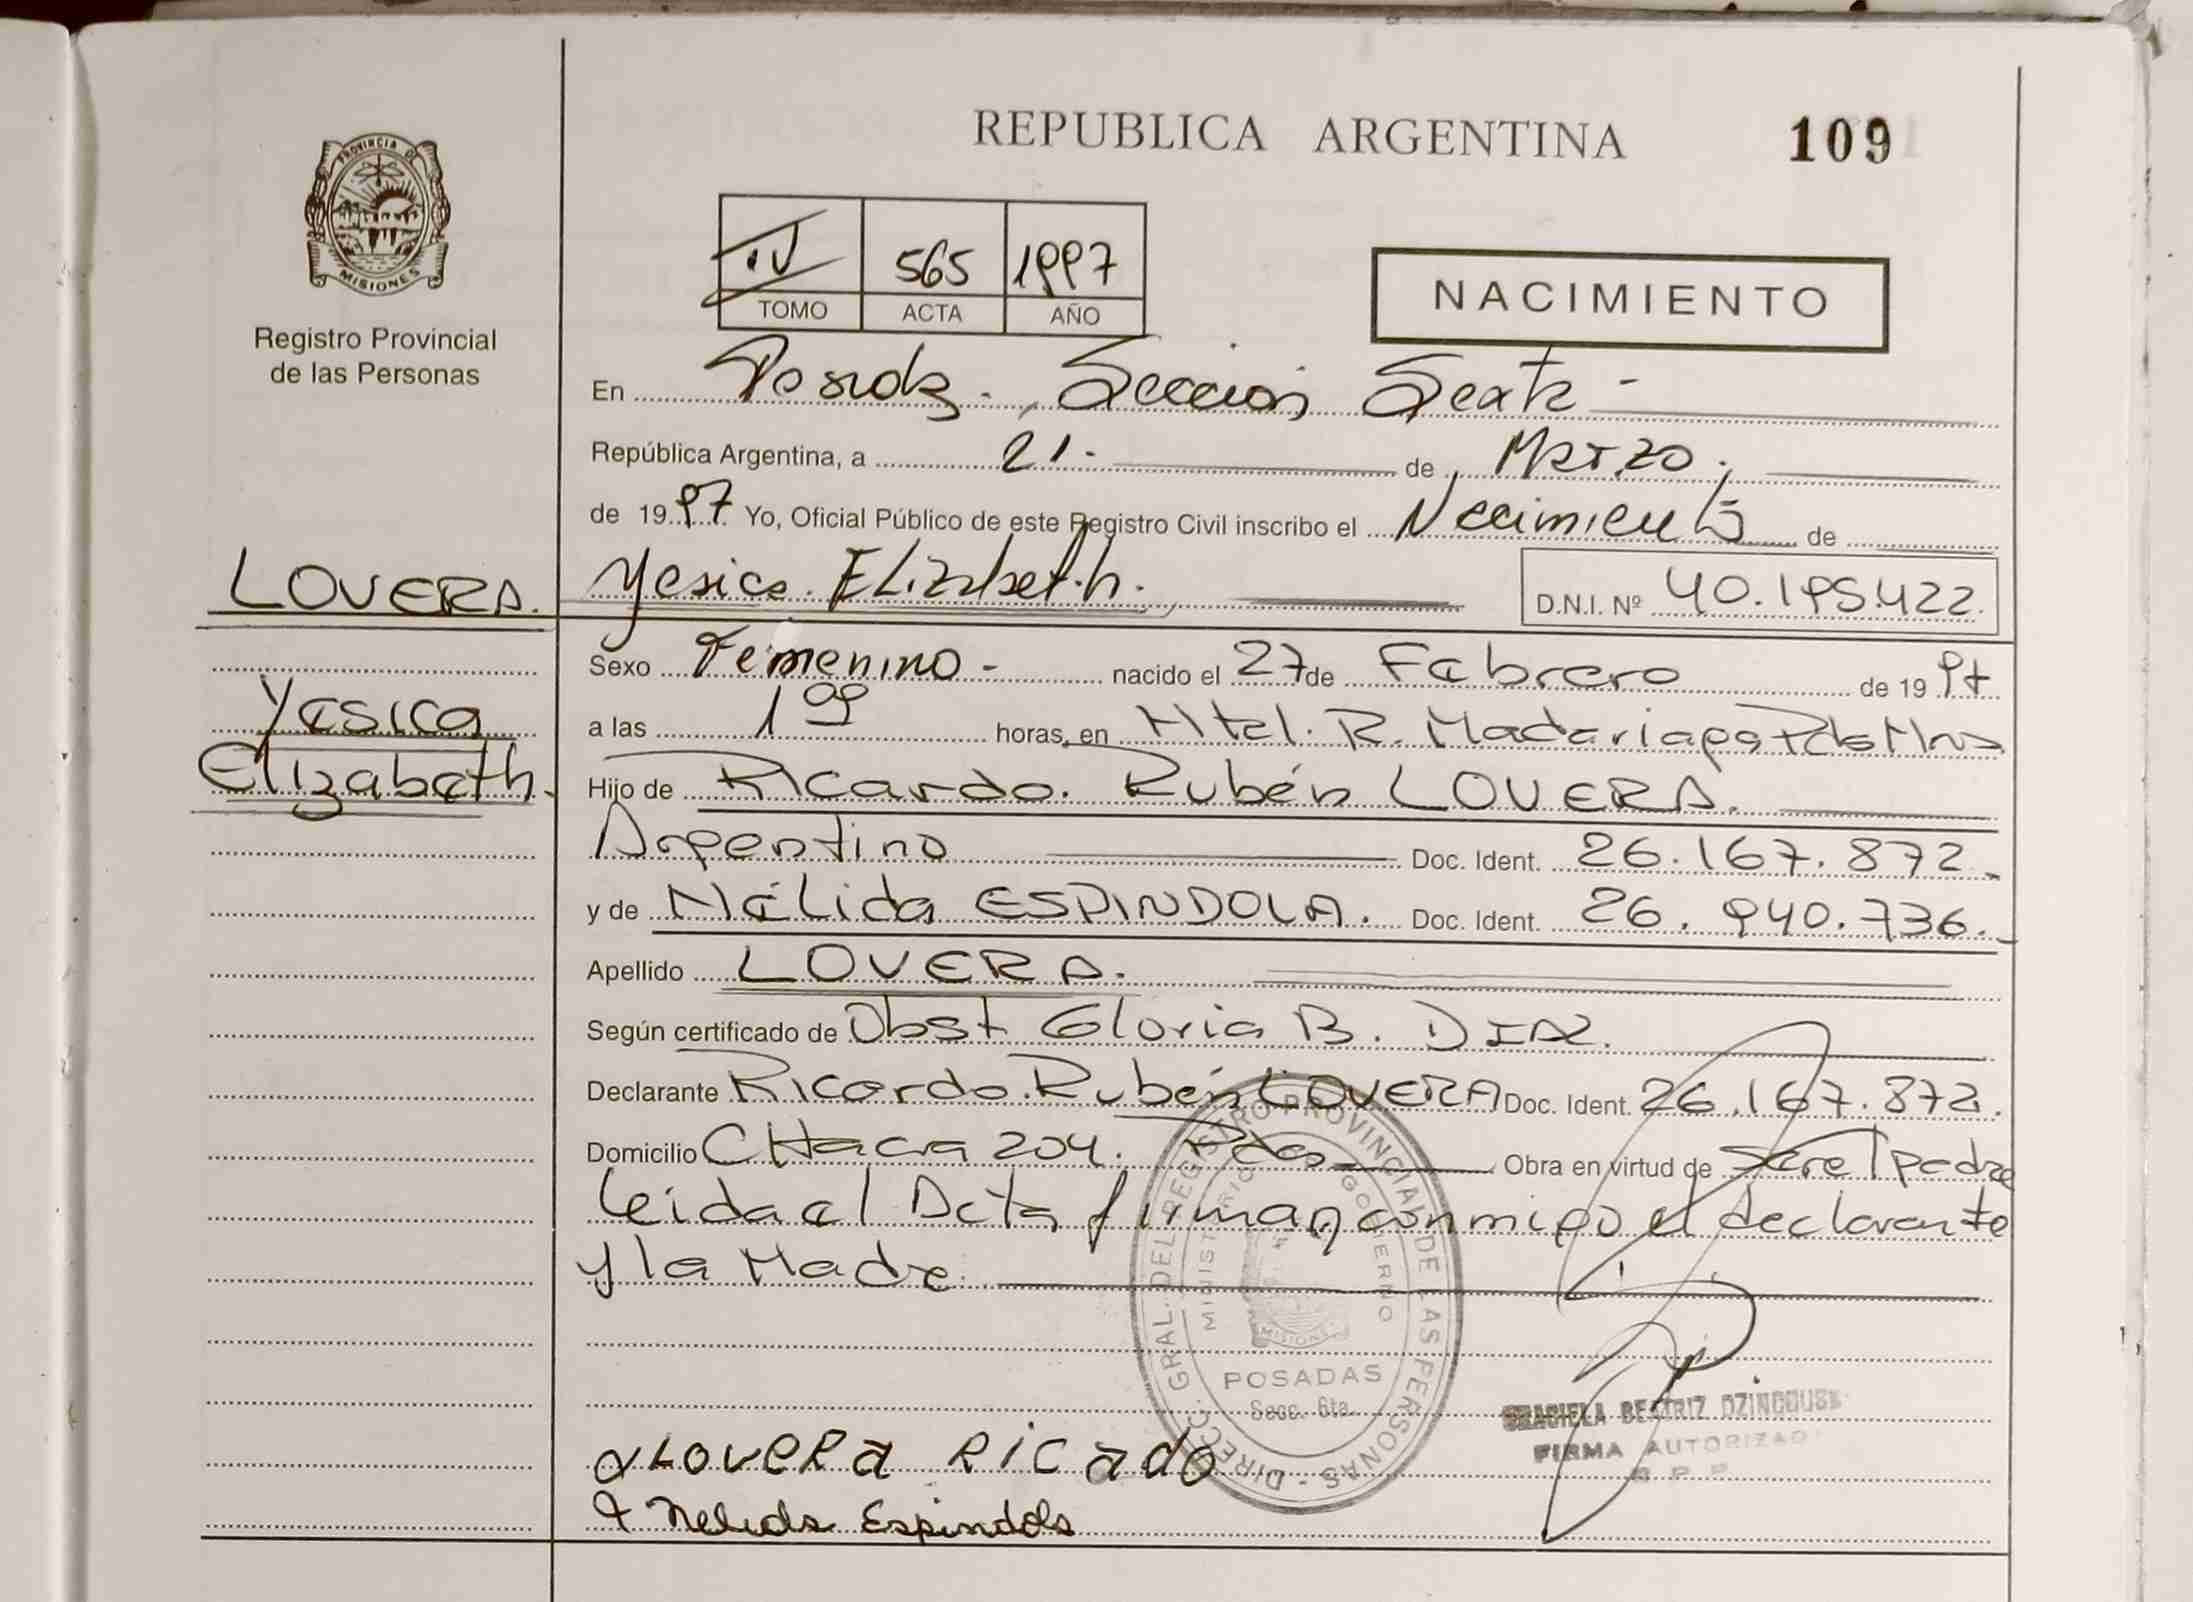 REPUBLICA ARGENTINA
109
PROVINCIA DE
MISIONES
Registro Provincial
de las Personas
IV 565 1997
TOMO ACTA AÑO
NACIMIENTO
En Posadas. Sección Sexta -
República Argentina, a 21 - de Marzo.
de 1997 Yo, Oficial Público de este Registro Civil inscribo el Nacimiento de
LOVERA.
Yesica Elizabeth.
D.N.I. Nº 40.195.422.
Sexo Femenino - nacido el 27 de Febrero de 1997
Yesica
Elizabeth.
a las 1 00 horas, en Htal. R. Madariaga Pdas Mnes
Hijo de Ricardo. Rubén LOVERA.
Argentino Doc. Ident. 26.167.872.
y de Nélida ESPINDOLA. Doc. Ident. 26.940.736.
Apellido LOVERA.
Según certificado de Obst Gloria B. DIAZ.
Declarante Ricardo. Rubén LOVERA Doc. Ident. 26.167.872.
Domicilio CHacra 204. Pdas Obra en virtud de ser el padre
leida el Acta firman conmigo el declarante
y la Madre.
DIRECC. GRAL. DEL REGISTRO PROVINCIAL DE LAS PERSONAS -
MINISTERIO GOBIERNO
MISIONES
POSADAS
Secc. 6ta.
GRACIELA BEATRIZ
FIRMA AUTORIZADA
R P P
LOVERA RICADO
Nelida Espindola